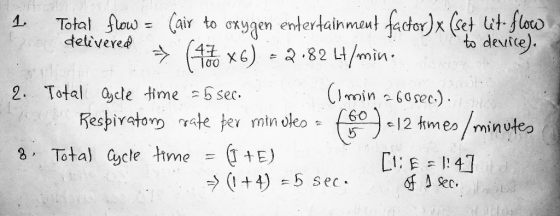 1. Total flow = (air to oxygen entertainment factor) x (set lit-flow
delivered to device).
⇒ (47/100 x 6) = 2.82 Lt/min.
2. Total Cycle time = 5 sec. (1 min = 60 sec.).
Respiratory rate per minutes = (60/5) = 12 times/minutes
3. Total Cycle time = (I + E) [I : E = 1 : 4]
⇒ (1 + 4) = 5 sec. of 1 sec.